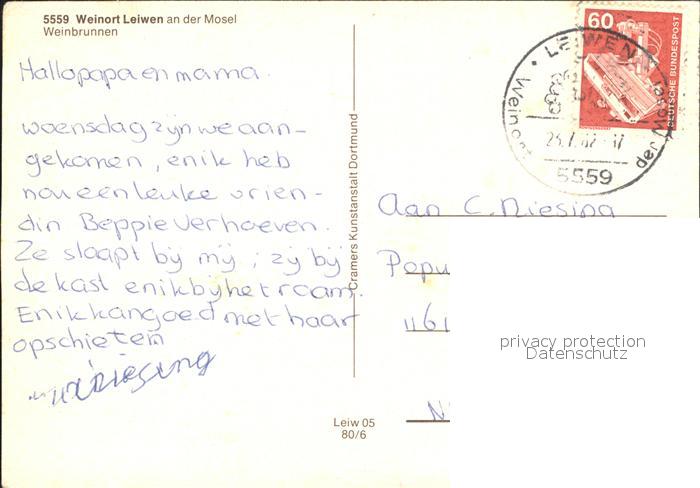 5559 Weinort Leiwen an der Mosel
Weinbrunnen
Hallo papa en mama.
woensdag zijn we aan-
gekomen, en ik heb
nou een leuke vrien-
din Beppie Verhoeven.
Ze slaapt bij mij, zij bij
de kast en ik bij het raam.
En ik kan goed met haar
opschieten
Cramers Kunstanstalt Dortmund
60
DEUTSCHE BUNDESPOST
LEIWEN
Weinort
der Mosel
5559
Aan C. Niesing
Popu
1161
N
privacy protection
Datenschutz
Leiw 05
80/6